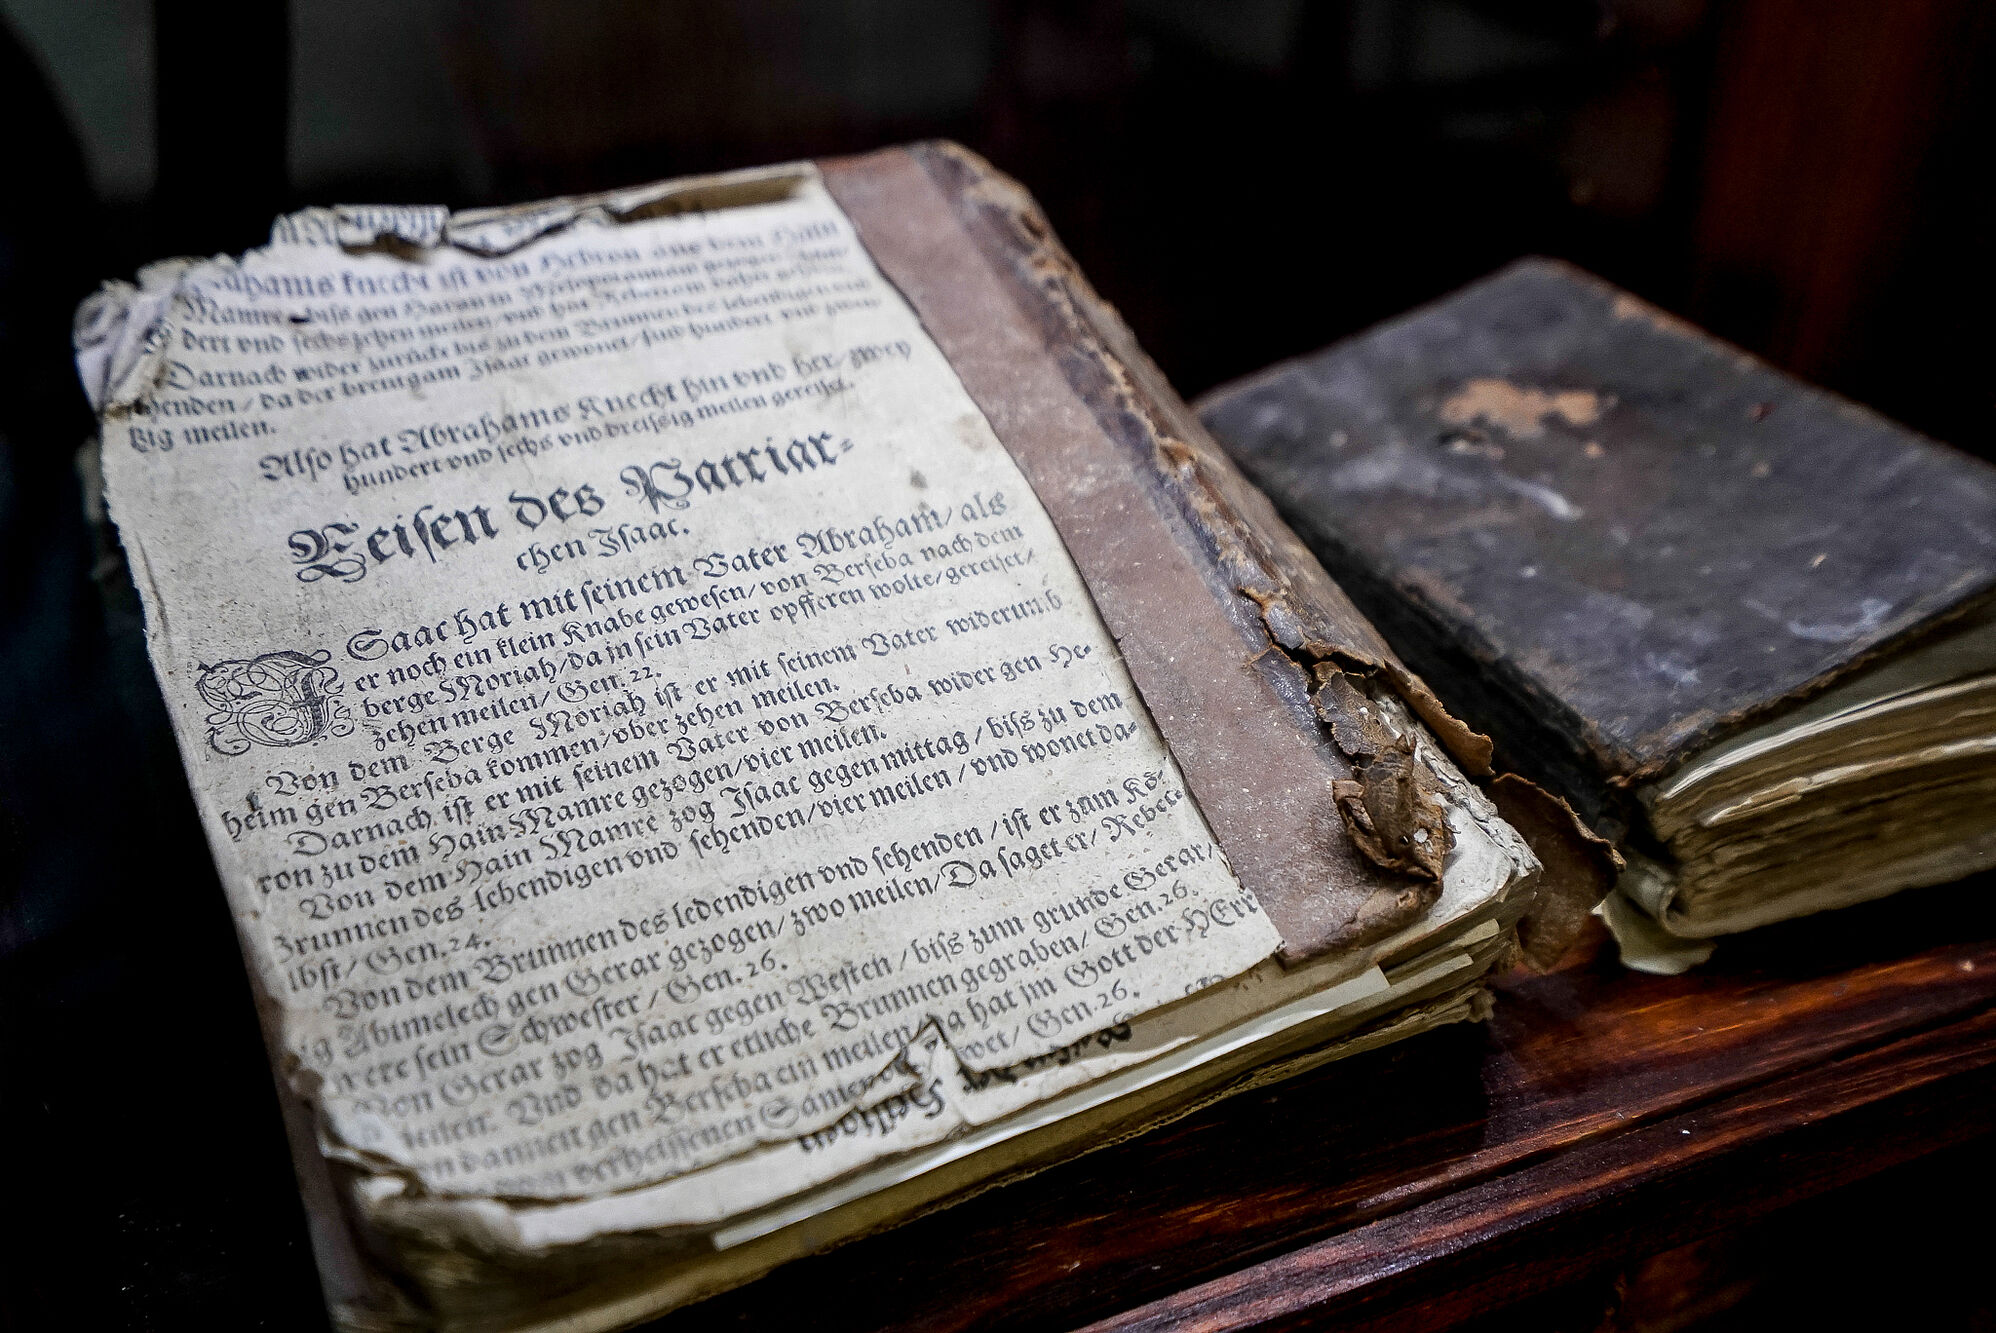 ahams knecht ist von Hebron aus dem Hain
Mamre biſs gen Haran in Meſopotamiam gezogen
dert vnd ſechszehen meilen/ vnd hat Rebecam daher geholet
Darnach wider zurück bis zu dem Brunnen des lebendigen vnd
ſehenden/ da der breutgam Iſaac gewonet/ ſind hundert vnd zwen
tzig meilen.
Alſo hat Abrahams Knecht hin vnd her/ zwey
hundert vnd ſechs vnd dreiſsig meilen gereiſet.
Reiſen des Patriar⸗
chen Iſaac.
ISaac hat mit ſeinem Vater Abraham/ als
er noch ein klein Knabe geweſen/ von Berſeba nach dem
berge Moriah/ da jn ſein Vater opfferen wolte/ gereiſet/
zehen meilen/ Gen. 22.
Von dem Berge Moriah iſt er mit ſeinem Vater widerumb
heim gen Berſeba kommen/ vber zehen meilen.
Darnach iſt er mit ſeinem Vater von Berſeba wider gen He⸗
ron zu dem Hain Mamre gezogen/ vier meilen.
Von dem Hain Mamre zog Iſaac gegen mittag/ biſs zu dem
Brunnen des lebendigen vnd ſehenden/ vier meilen/ vnd wonet da⸗
lbſt/ Gen. 24.
Von dem Brunnen des lebendigen vnd ſehenden/ iſt er zum Kö⸗
ig Abimelech gen Gerar gezogen/ zwo meilen/ Da ſaget er/ Rebec
were ſein Schweſter/ Gen. 26.
Von Gerar zog Iſaac gegen Weſten/ biſs zum grunde Gerar/
meilen. Vnd da hat er etliche Brunnen gegraben/ Gen. 26.
on dannen gen Berſeba ein meilen/ da hat jm Gott der HErr
verheiſſenen Samen wet/ Gen. 26.